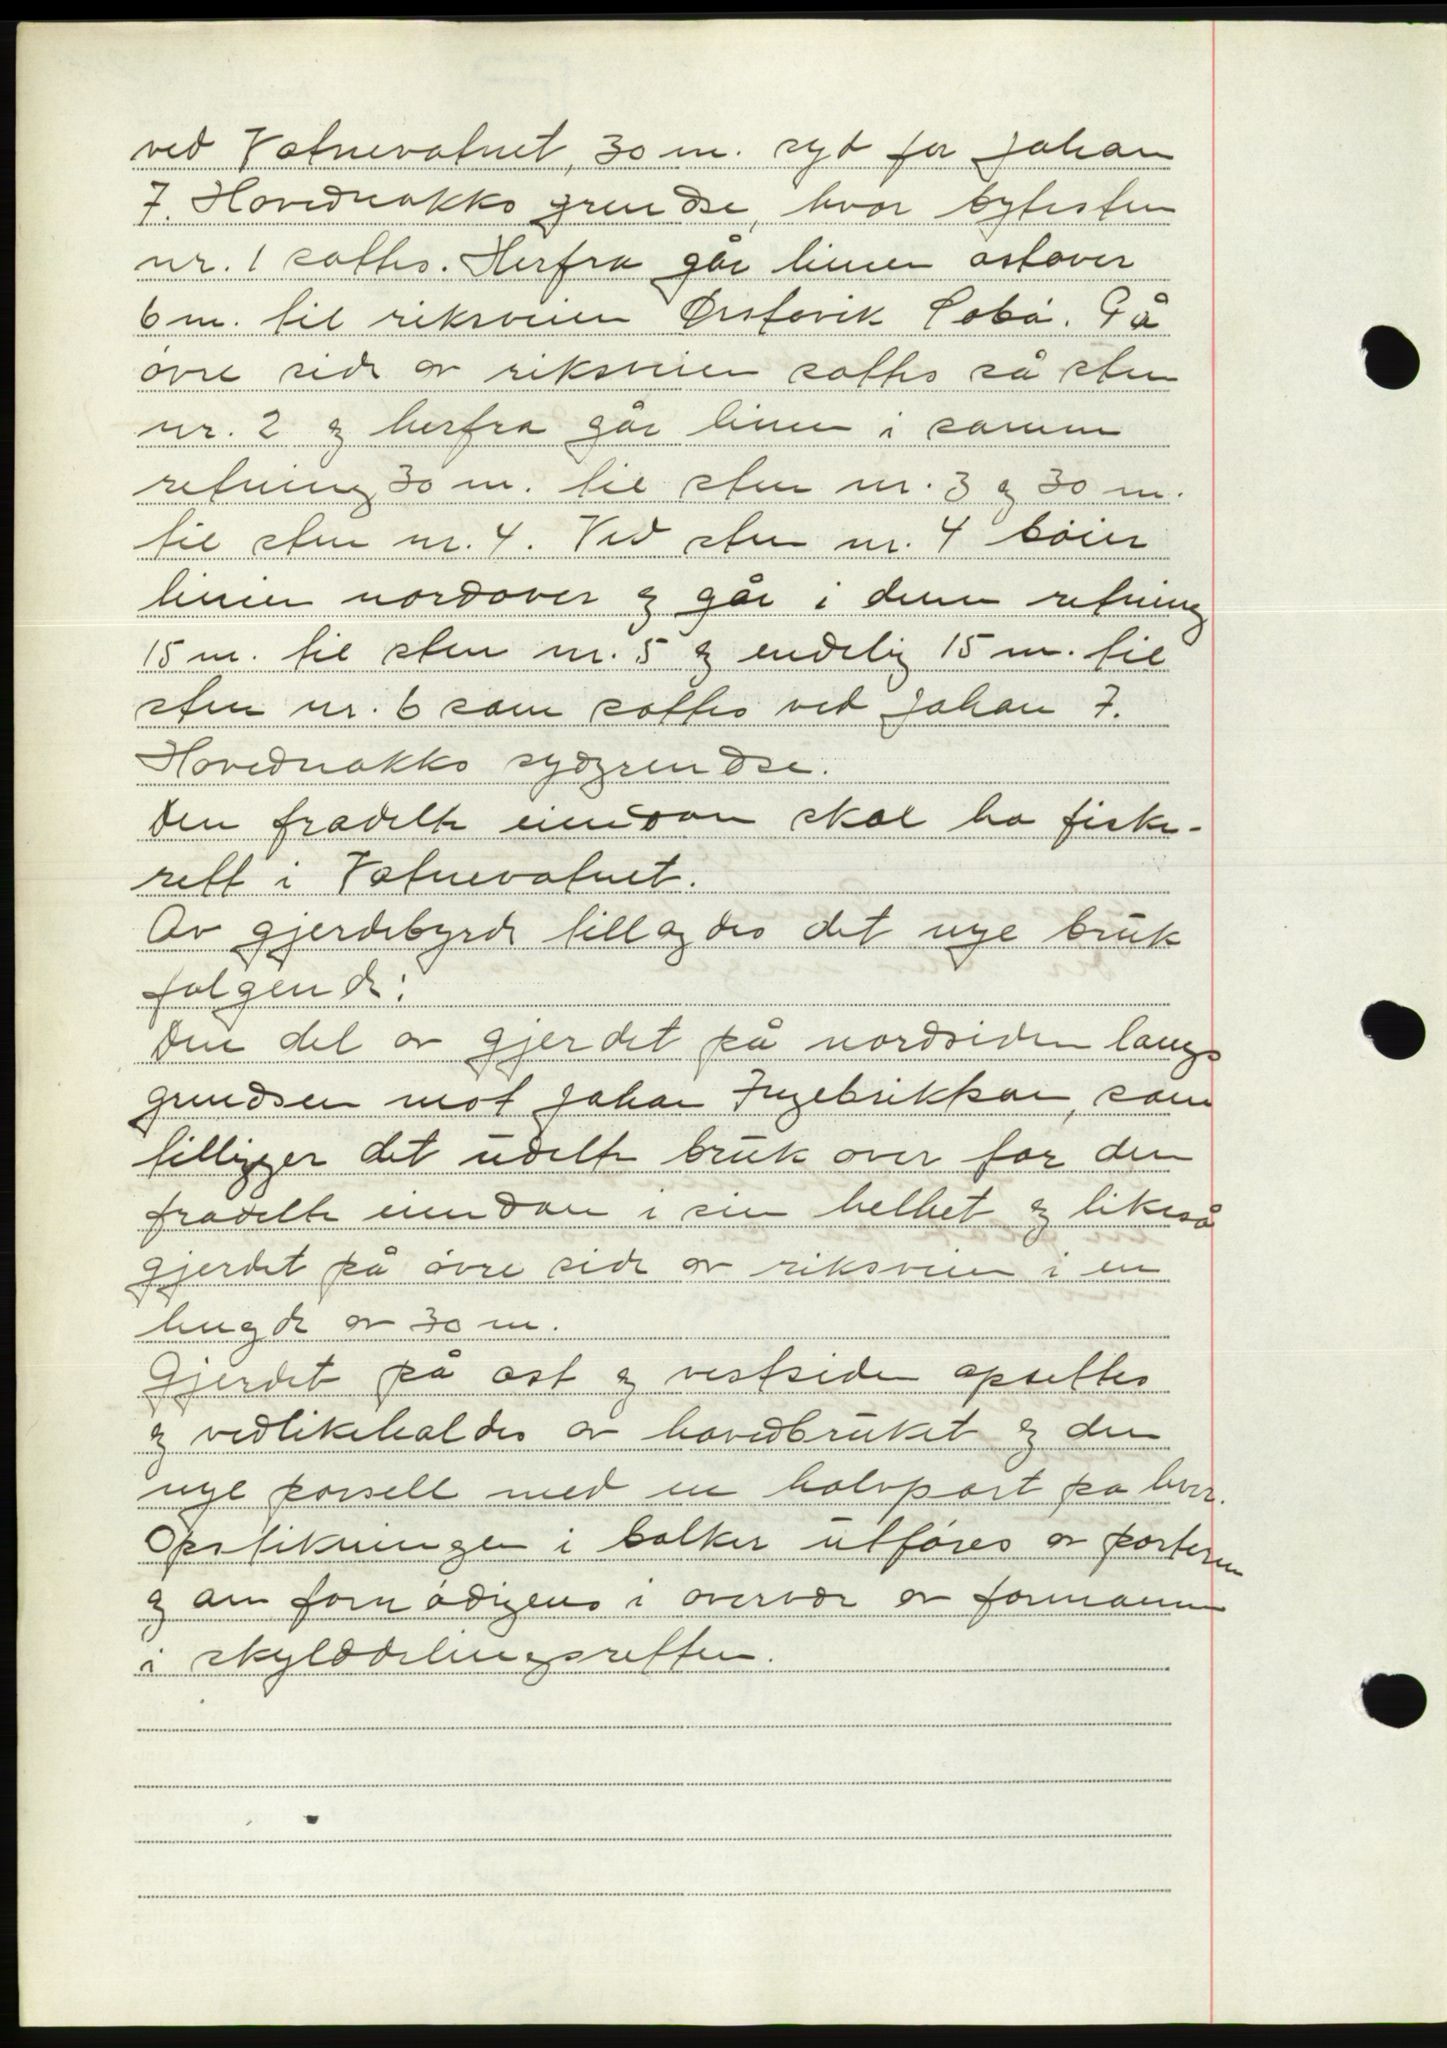 ved Vatnevatnet, 30 m. syd for Johan
I. Hovednakks grendse, hvor bytesten
nr. 1 sattes. Herfra går linien østover
6 m. til riksveien Ørstavik Sæbø. På
øvre side av riksveien sattes så sten
nr. 2 og herfra går linien i samme
retning 30 m. til sten nr. 3 og 30 m.
til sten nr. 4. Ved sten nr. 4 bøier
linien nordover og går i denne retning
15 m. til sten nr. 5 og endelig 15 m. til
sten nr. 6 som sattes ved Johan I.
Hovednakks sydgrendse.
Den fradelte eiendom skal ha fiske-
rett i Vatnevatnet.
Av gjerdebyrde tillagdes det nye bruk
følgende:
Den del av gjerdet på nordsiden langs
grendsen mot Johan Ingebriktsen, som
tilligger det udelte bruk over for den
fradelte eiendom i sin helhet og likeså
gjerdet på øvre side av riksveien i en
lengde av 30 m.
Gjerdet på øst og vestsiden opsettes
og vedlikeholdes av hovedbruket og den
nye parsell med en halvpart på hver.
Opstikningen i bolker utføres av parterne
og om fornødigens i overvær av formannen
i skylddelingsretten.